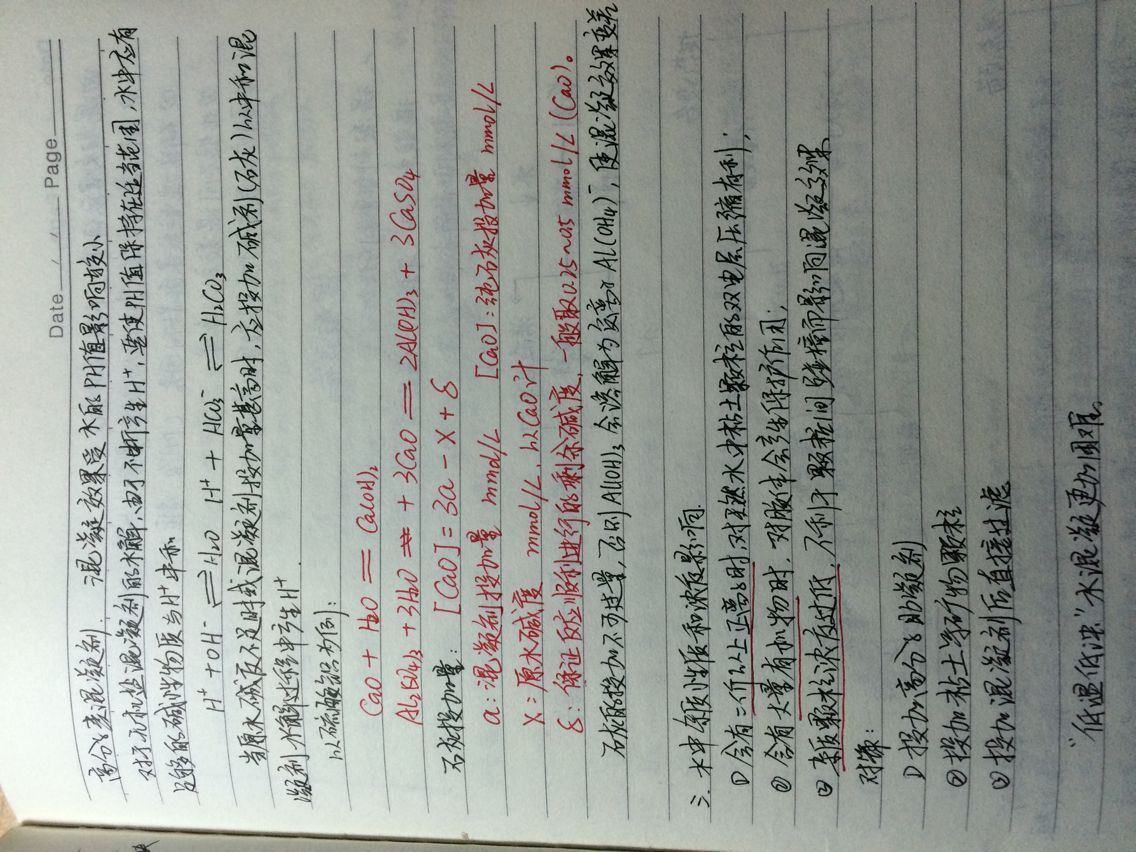 Date / / Page
高分子类混凝剂. 混凝效果受水的PH值影响较小
对于无机盐混凝剂的水解,由于不断产生H⁺,要使PH值保持在适当范围,水中应有
足够的碱性物质与H⁺中和
H⁺ + OH⁻ ⇌ H₂O H⁺ + HCO₃⁻ ⇌ H₂CO₃
当原水碱度不足时或混凝剂投加量甚高时,应投加碱剂(石灰)以中和混
凝剂水解过程中产生H⁺
以硫酸铝为例:
CaO + H₂O = Ca(OH)₂
Al₂(SO₄)₃ + 3H₂O + 3CaO = 2Al(OH)₃ + 3CaSO₄
石灰投加量: [CaO] = 3a - x + δ
a:混凝剂投加量 mmol/L [CaO]:纯石灰投加量 mmol/L
x:原水碱度 mmol/L,以CaO计
δ:保证反应顺利进行的剩余碱度,一般取0.25~0.5 mmol/L (CaO)。
石灰的投加不可过量,否则Al(OH)₃会溶解为负离子Al(OH)₄⁻,使混凝效果变差
三、水中杂质性质和浓度影响
① 含有二价以上正离子时,对天然水中粘土颗粒的双电层压缩有利;
② 含有大量有机物时,对胶体会产生保护作用;
③ 杂质颗粒浓度过低,不利于颗粒间碰撞而影响混凝效果
对策:
① 投加高分子助凝剂
② 投加粘土等矿物颗粒
③ 投加混凝剂后直接过滤
"低温低浊"水混凝更加困难。